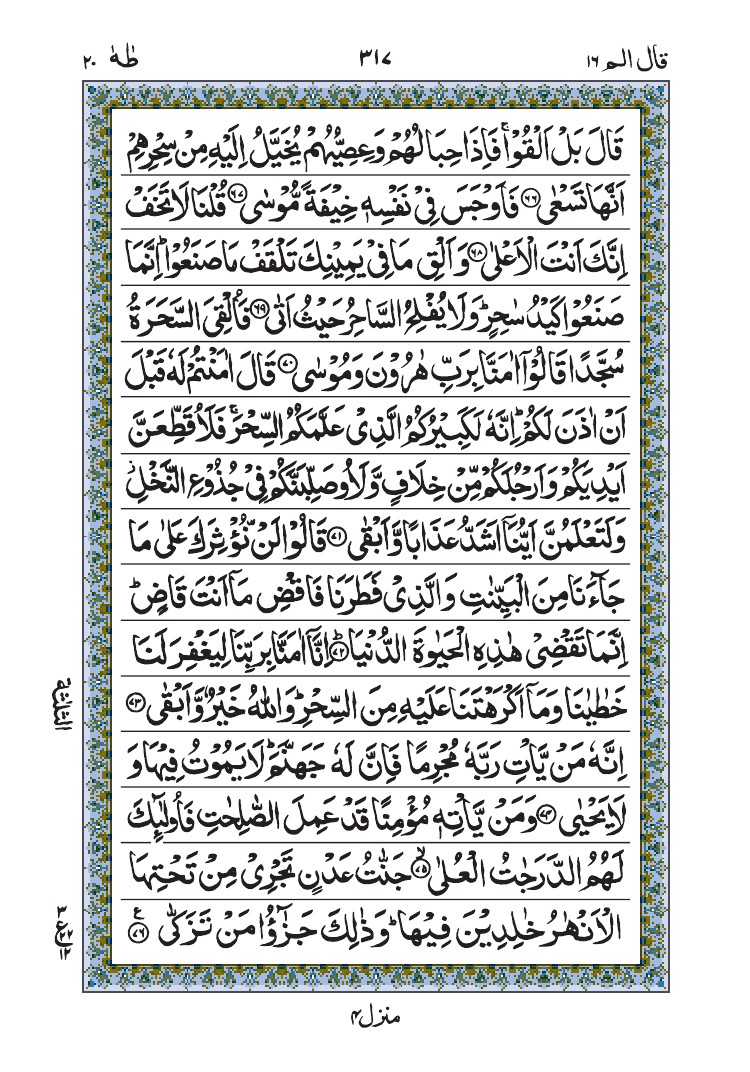 قال الم ١٦
٣١٧
طٰهٰ ٢٠
قَالَ بَلْ اَلْقُوْا ۚ فَاِذَا حِبَالُهُمْ وَعِصِيُّهُمْ يُخَيَّلُ اِلَيْهِ مِنْ سِحْرِهِمْ
اَنَّهَا تَسْعٰى ﴿٦٦﴾ فَاَوْجَسَ فِيْ نَفْسِهٖ خِيْفَةً مُّوْسٰى ﴿٦٧﴾ قُلْنَا لَا تَخَفْ
اِنَّكَ اَنْتَ الْاَعْلٰى ﴿٦٨﴾ وَاَلْقِ مَا فِيْ يَمِيْنِكَ تَلْقَفْ مَا صَنَعُوْا ؕ اِنَّمَا
صَنَعُوْا كَيْدُ سٰحِرٍ ؕ وَلَا يُفْلِحُ السَّاحِرُ حَيْثُ اَتٰى ﴿٦٩﴾ فَاُلْقِيَ السَّحَرَةُ
سُجَّدًا قَالُوْۤا اٰمَنَّا بِرَبِّ هٰرُوْنَ وَمُوْسٰى ﴿٧٠﴾ قَالَ اٰمَنْتُمْ لَهٗ قَبْلَ
اَنْ اٰذَنَ لَكُمْ ؕ اِنَّهٗ لَكَبِيْرُكُمُ الَّذِيْ عَلَّمَكُمُ السِّحْرَ ۚ فَلَاُقَطِّعَنَّ
اَيْدِيَكُمْ وَاَرْجُلَكُمْ مِّنْ خِلَافٍ وَّلَاُوصَلِّبَنَّكُمْ فِيْ جُذُوْعِ النَّخْلِ ؗ
وَلَتَعْلَمُنَّ اَيُّنَاۤ اَشَدُّ عَذَابًا وَّاَبْقٰى ﴿٧١﴾ قَالُوْا لَنْ نُّؤْثِرَكَ عَلٰى مَا
جَآءَنَا مِنَ الْبَيِّنٰتِ وَالَّذِيْ فَطَرَنَا فَاقْضِ مَاۤ اَنْتَ قَاضٍ ؕ
اِنَّمَا تَقْضِيْ هٰذِهِ الْحَيٰوةَ الدُّنْيَا ؕ ﴿٧٢﴾ اِنَّاۤ اٰمَنَّا بِرَبِّنَا لِيَغْفِرَ لَنَا
خَطٰيٰنَا وَمَاۤ اَكْرَهْتَنَا عَلَيْهِ مِنَ السِّحْرِ ؕ وَاللّٰهُ خَيْرٌ وَّاَبْقٰى ﴿٧٣﴾
اِنَّهٗ مَنْ يَّاْتِ رَبَّهٗ مُجْرِمًا فَاِنَّ لَهٗ جَهَنَّمَ ؕ لَا يَمُوْتُ فِيْهَا وَ
لَا يَحْيٰى ﴿٧٤﴾ وَمَنْ يَّاْتِهٖ مُؤْمِنًا قَدْ عَمِلَ الصّٰلِحٰتِ فَاُولٰٓئِكَ
لَهُمُ الدَّرَجٰتُ الْعُلٰى ۙ ﴿٧٥﴾ جَنّٰتُ عَدْنٍ تَجْرِيْ مِنْ تَحْتِهَا
الْاَنْهٰرُ خٰلِدِيْنَ فِيْهَا ؕ وَذٰلِكَ جَزٰٓؤُا مَنْ تَزَكّٰى ﴿٧٦﴾ ع
الثلثة
٣
ع ٢٢
١٢
منزل ٤